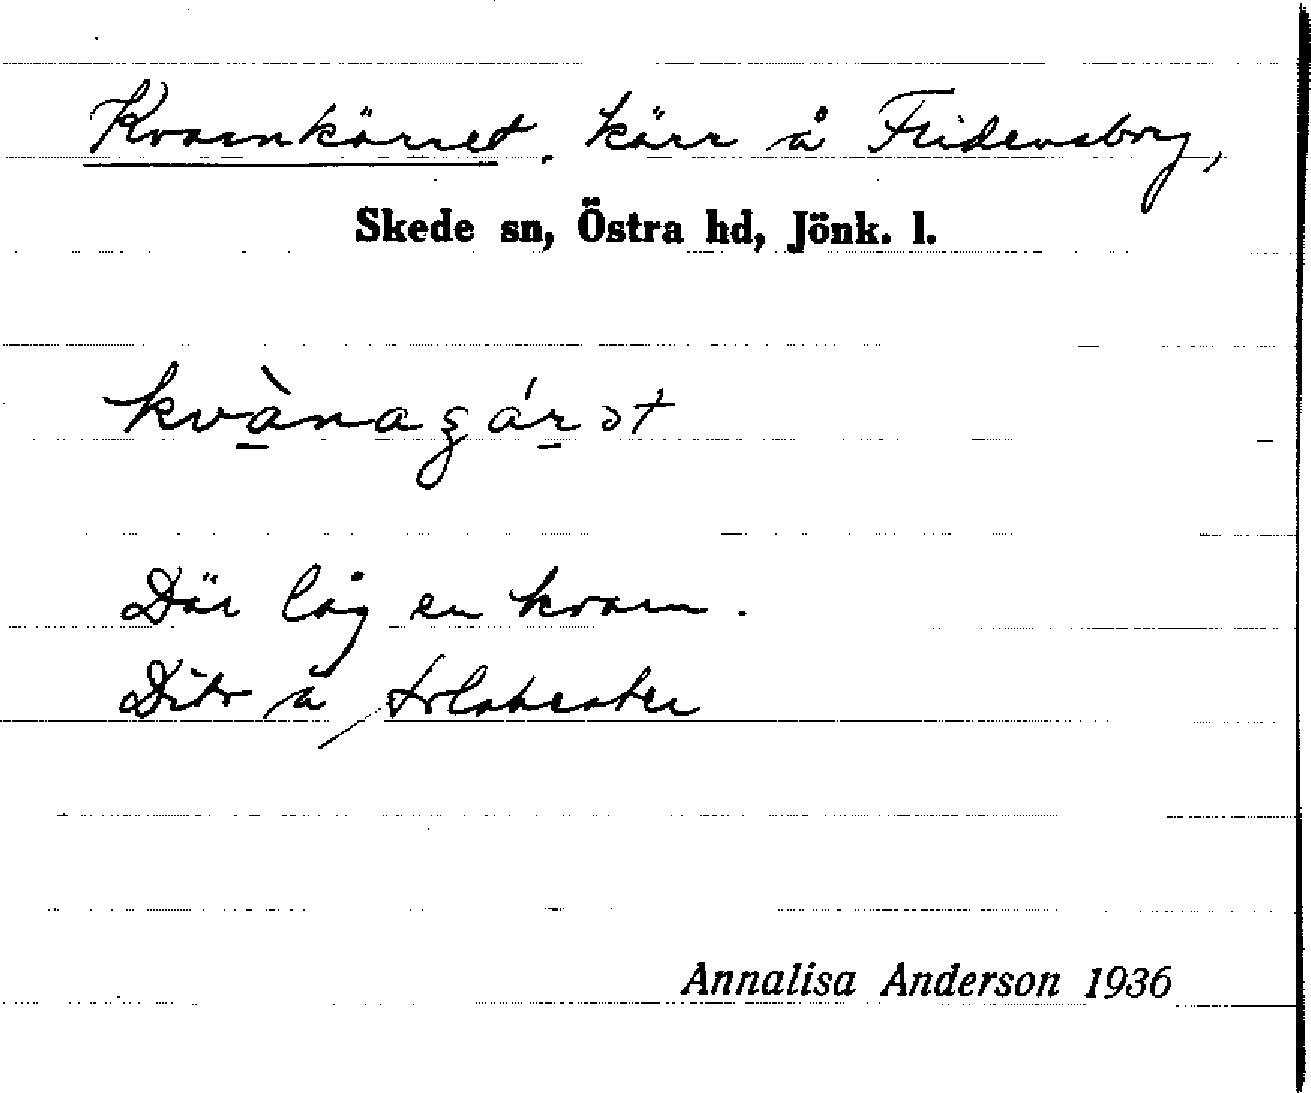 Kvarnkärret. kärr å Fridensborg,
Skede sn, Östra hd, Jönk. l.
Där låg en kvarn.
Dito å
Annalisa Anderson 1936